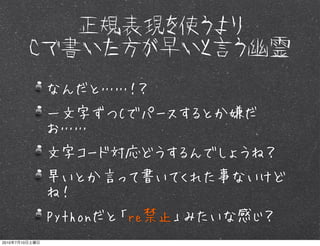 正規表現を使うより
Cで書いた方が早いと言う幽霊
なんだと……!?
一文字ずつCでパースするとか嫌だ
お……
文字コード対応どうするんでしょうね?
早いとか言って書いてくれた事ないけど
ね!
Pythonだと「re禁止」みたいな感じ?
2010年7月10日土曜日